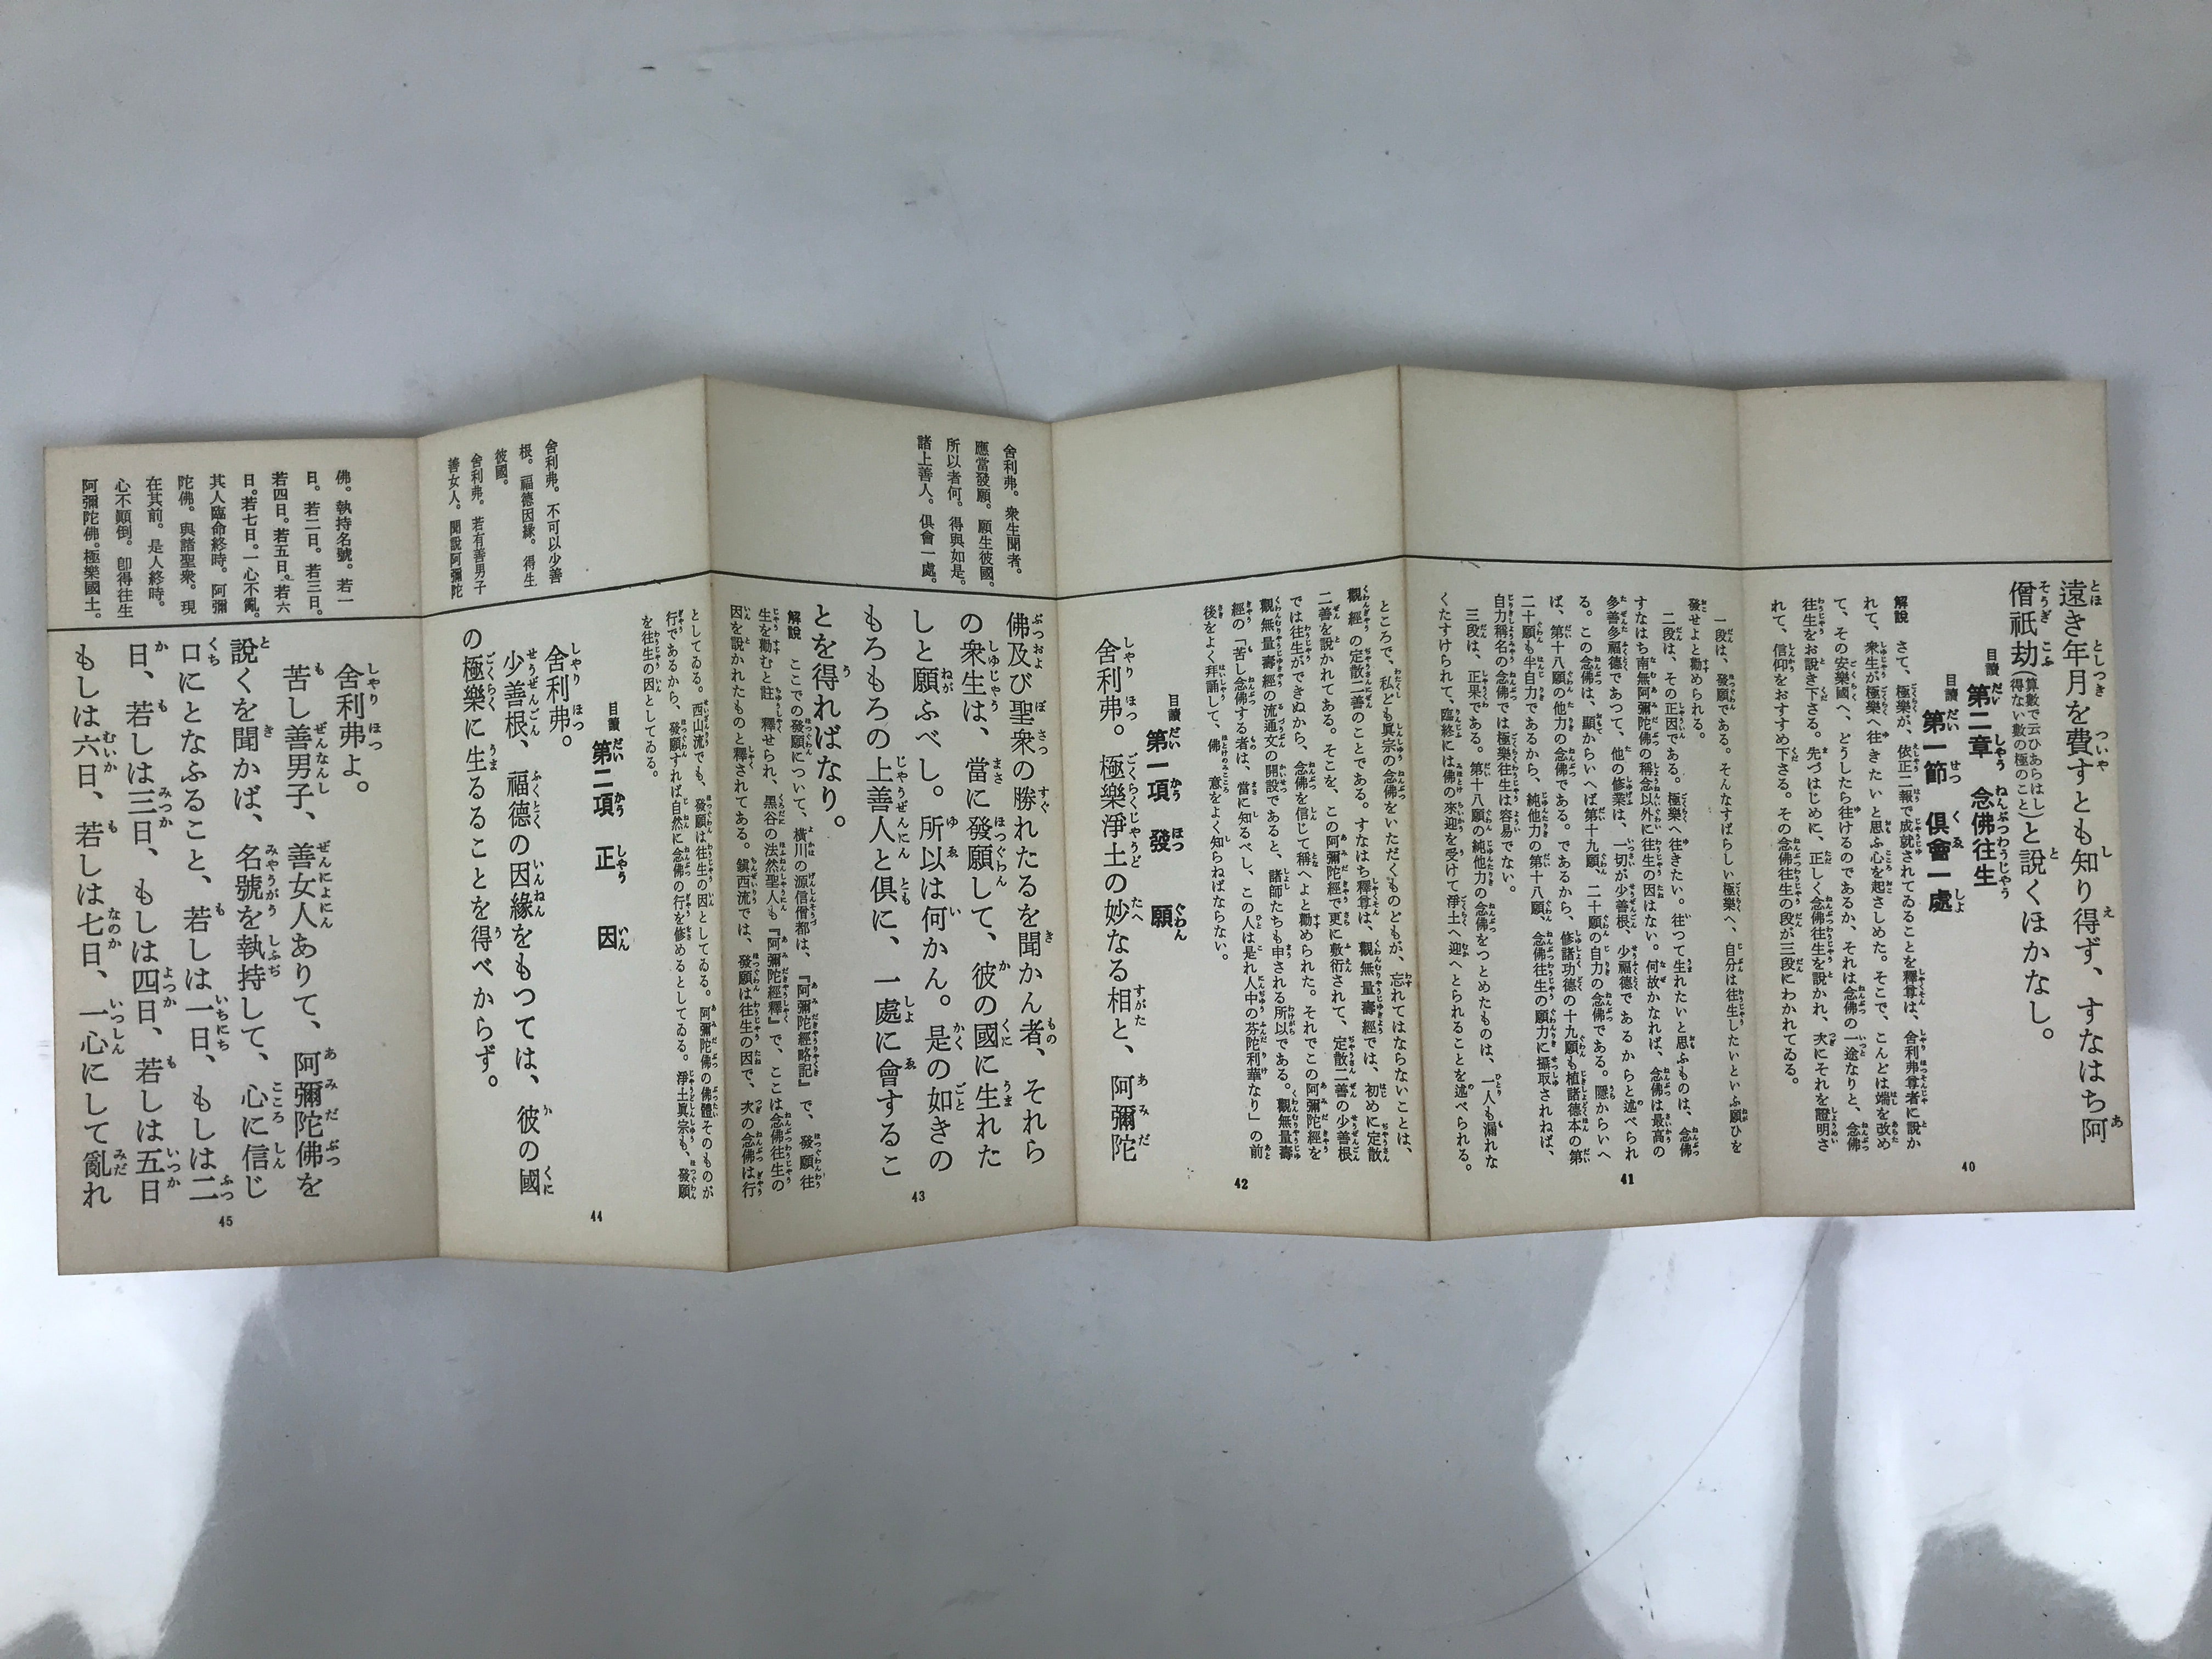 遠き年月を費すとも知り得ず、すなはち阿
僧祇劫(算數で云ひあらはし得ない數の極のこと)と說くほかなし。
目讀 第二章 念佛往生
目讀 第一節 俱會一處
解說 さて、極樂が、依正二報で成就されてゐることを釋尊は、舍利弗尊者に說か
れて、衆生が極樂へ往きたいと思ふ心を起さしめた。そこで、こんどは端を改め
て、その安樂國へ、どうしたら往けるのであるか、それは念佛の一途なりと、念佛
往生をお說き下さる。先づはじめに、正しく念佛往生を說かれ、次にそれを證明さ
れて、信仰をおすすめ下さる。その念佛往生の段が三段にわかれてゐる。
40
一段は、發願である。そんなすばらしい極樂へ、自分は往生したいといふ願ひを
發せよと勸められる。
二段は、その正因である。極樂へ往きたい。往つて生れたいと思ふものは、念佛
すなはち南無阿彌陀佛の稱念以外に往生の因はない。何故かなれば、念佛は最高の
多善多福德であつて、他の修業は、一切が少善根、少福德であるからと述べられ
る。この念佛は、顯からいへば第十九願、二十願の自力の念佛である。隱からいへ
ば、第十八願の他力の念佛である。であるから、修諸功德の十九願も植諸德本の第
二十願も半自力であるから、純他力の第十八願、念佛往生の願力に攝取されねば、
自力稱名の念佛では極樂往生は容易でない。
三段は、正果である。第十八願の純他力の念佛をつとめたものは、一人も漏れな
くたすけられて、臨終には佛の來迎を受けて淨土へ迎へとられることを述べられる。
41
ところで、私ども眞宗の念佛をいただくものどもが、忘れてはならないことは、
觀經の定散二善のことである。すなはち釋尊は、觀無量壽經では、初めに定散
二善を說かれてある。そこを、この阿彌陀經で更に敷衍されて、定散二善の少善根
では往生ができぬから、念佛を信じて稱へよと勸められた。それでこの阿彌陀經を
觀無量壽經の流通文の開設であると、諸師たちも申される所以である。觀無量壽
經の「若し念佛する者は、當に知るべし、この人は是れ人中の芬陀利華なり」の前
後をよく拜誦して、佛意をよく知らねばならない。
目讀 第一項 發願
舍利弗。極樂淨土の妙なる相と、阿彌陀
42
舍利弗。衆生聞者。
應當發願。願生彼國。
所以者何。得與如是。
諸上善人。俱會一處。
佛及び聖衆の勝れたるを聞かん者、それら
の衆生は、當に發願して、彼の國に生れた
しと願ふべし。所以は何かん。是の如きの
もろもろの上善人と俱に、一處に會するこ
とを得ればなり。
解說 ここでの發願について、橫川の源信僧都は、『阿彌陀經略記』で、發願往
生を勸むと註釋せられ、黑谷の法然聖人も『阿彌陀經釋』で、ここは念佛往生の
因を說かれたものと釋されてある。鎭西流では、發願は往生の因で、次の念佛は行
43
としてゐる。西山流でも、發願は往生の因としてゐる。阿彌陀佛の佛體そのものが
行であるから、發願すれば自然に念佛の行を修めるとしてゐる。淨土眞宗も、發願
を往生の因としてゐる。
目讀 第二項 正因
舍利弗。不可以少善
根。福德因緣。得生
彼國。
舍利弗。若有善男子
善女人。聞說阿彌陀
舍利弗。
少善根、福德の因緣をもつては、彼の國
の極樂に生るることを得べからず。
44
佛。執持名號。若一
日。若二日。若三日。
若四日。若五日。若六
日。若七日。一心不亂。
其人臨命終時。阿彌
陀佛。與諸聖衆。現
在其前。是人終時。
心不顚倒。卽得往生
阿彌陀佛。極樂國土。
舍利弗よ。
若し善男子、善女人ありて、阿彌陀佛を
說くを聞かば、名號を執持して、心に信じ
口にとなふること、若しは一日、もしは二
日、若しは三日、もしは四日、若しは五日
もしは六日、若しは七日、一心にして亂れ
45